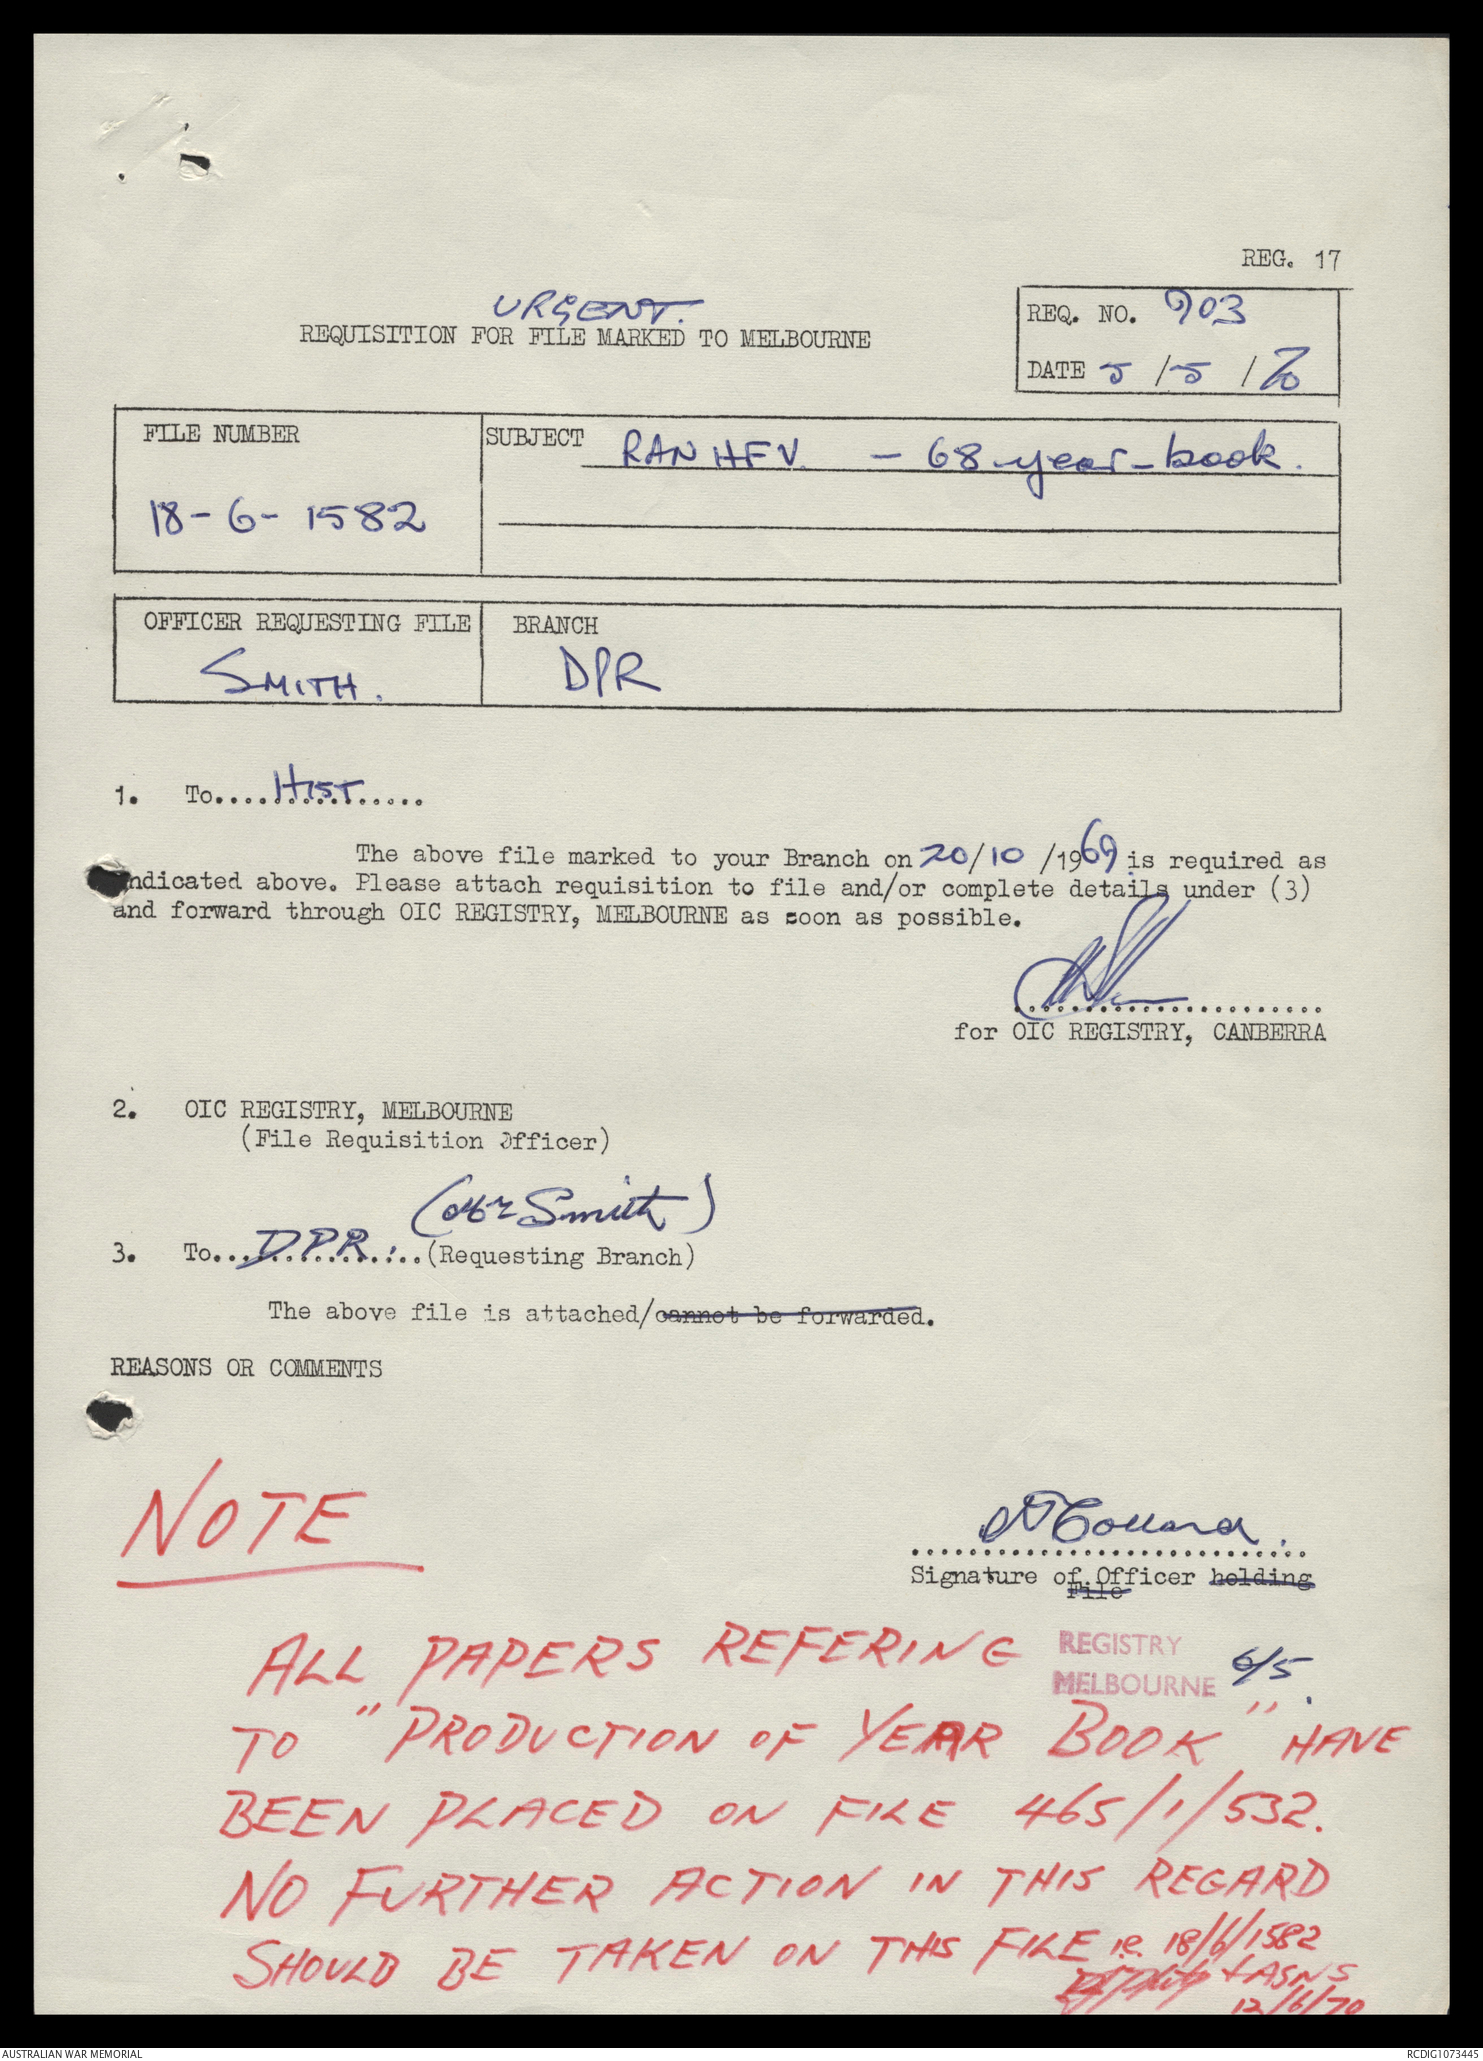 REG. 17
URGENT.
REQUISITION FOR FILE MARKED TO MELBOURNE
REQ. NO. 903
DATE 5/5/70
FILE NUMBER
18-6-1582
SUBJECT RANHFV. - 68 year-book.
OFFICER REQUESTING FILE
SMITH.
BRANCH
DPR
1. To....HIST.......
The above file marked to your Branch on 20/10/1969 is required as
indicated above. Please attach requisition to file and/or complete details under (3)
and forward through OIC REGISTRY, MELBOURNE as soon as possible.
for OIC REGISTRY, CANBERRA
2. OIC REGISTRY, MELBOURNE
(File Requisition Officer)
(Mr Smith)
3. To...DPR.....(Requesting Branch)
The above file is attached/cannot be forwarded.
REASONS OR COMMENTS
NOTE
Collard.
Signature of Officer holding
File
REGISTRY
MELBOURNE 6/5.
ALL PAPERS REFERING
TO "PRODUCTION OF YEAR BOOK" HAVE
BEEN PLACED ON FILE 465/1/532.
NO FURTHER ACTION IN THIS REGARD
SHOULD BE TAKEN ON THIS FILE i.e. 18/6/1582
ASNS
12/6/70
AUSTRALIAN WAR MEMORIAL
RCDIG1073445